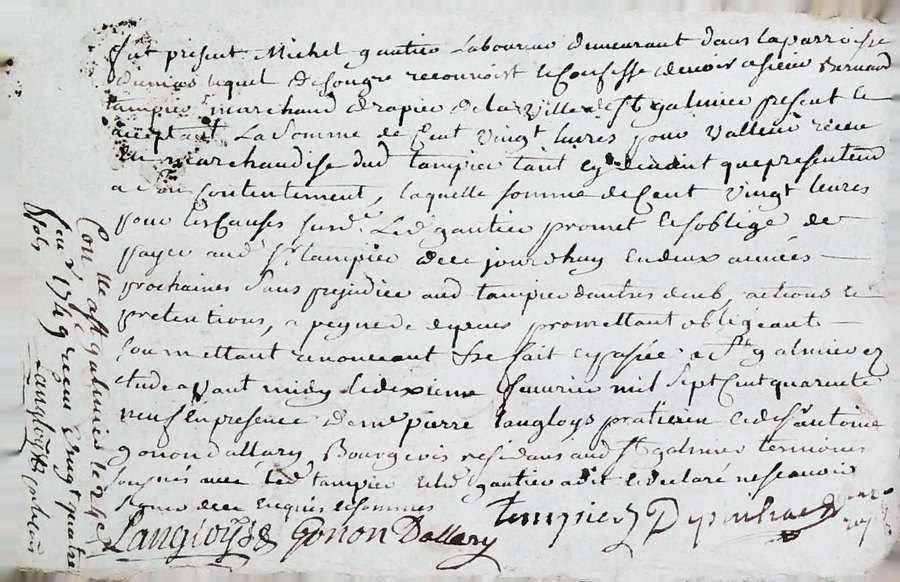 fut présent Michel gautier Laboureur demeurant dans la parroisse
lequel de son gre reconnoist et confesse devoir a sieur Bernard
tampier marchand drapier de la ville de St galmier present et
acceptant La somme de Cent vingt livres pour valleur receue
en marchandise dud tampier tant cy devant que presentem
a son contentement, laquelle somme de Cent vingt livres
pour les causes susd. Led gautier promet et soblige de
payer aud Sr tampier dece jourdhuy en deux années
prochaines Sans prejudice aud tampier dautres deub, actions et
pretentions, a peyne de promettant obligeant
soumettant renonceant fait et passée a St galmier
etude avant midy le dixieme fevrier mil sept cent quarente
neuf En presence de me pierre Langloys praticien et de Sr antoine
gonon dallary Bourgeois residans aud St galmier temoins
soignés avec led tampier et led gautier a dit et declaré ne scavoir
signer de ce enquis et sommé
Langloys Gonon Dallary tempier
Con lle a St galmier le
fev 1749 receu vingt quatre
sols Langloys